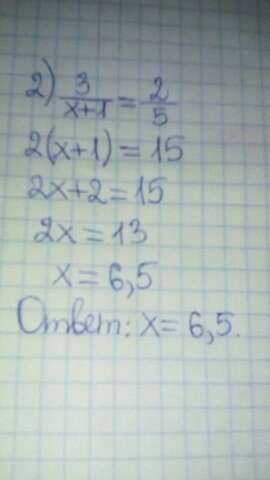 2) 3/(x+1) = 2/5
2(x+1) = 15
2x+2=15
2x = 13
x = 6,5
Ответ: x = 6,5.